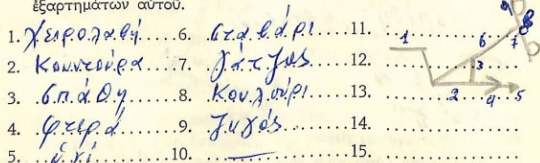 ἐξαρτημάτων αὐτοῦ.
1. Χειρολαβή 6. σταβάρι 11.
2. Κουντούρα 7. γάτζος 12.
3. σπάθη 8. Κουλούρι 13.
4. φτερά 9. Ζυγός 14.
5. ὑνί 10. — 15.
1 2 3 4 5 6 7 8 9